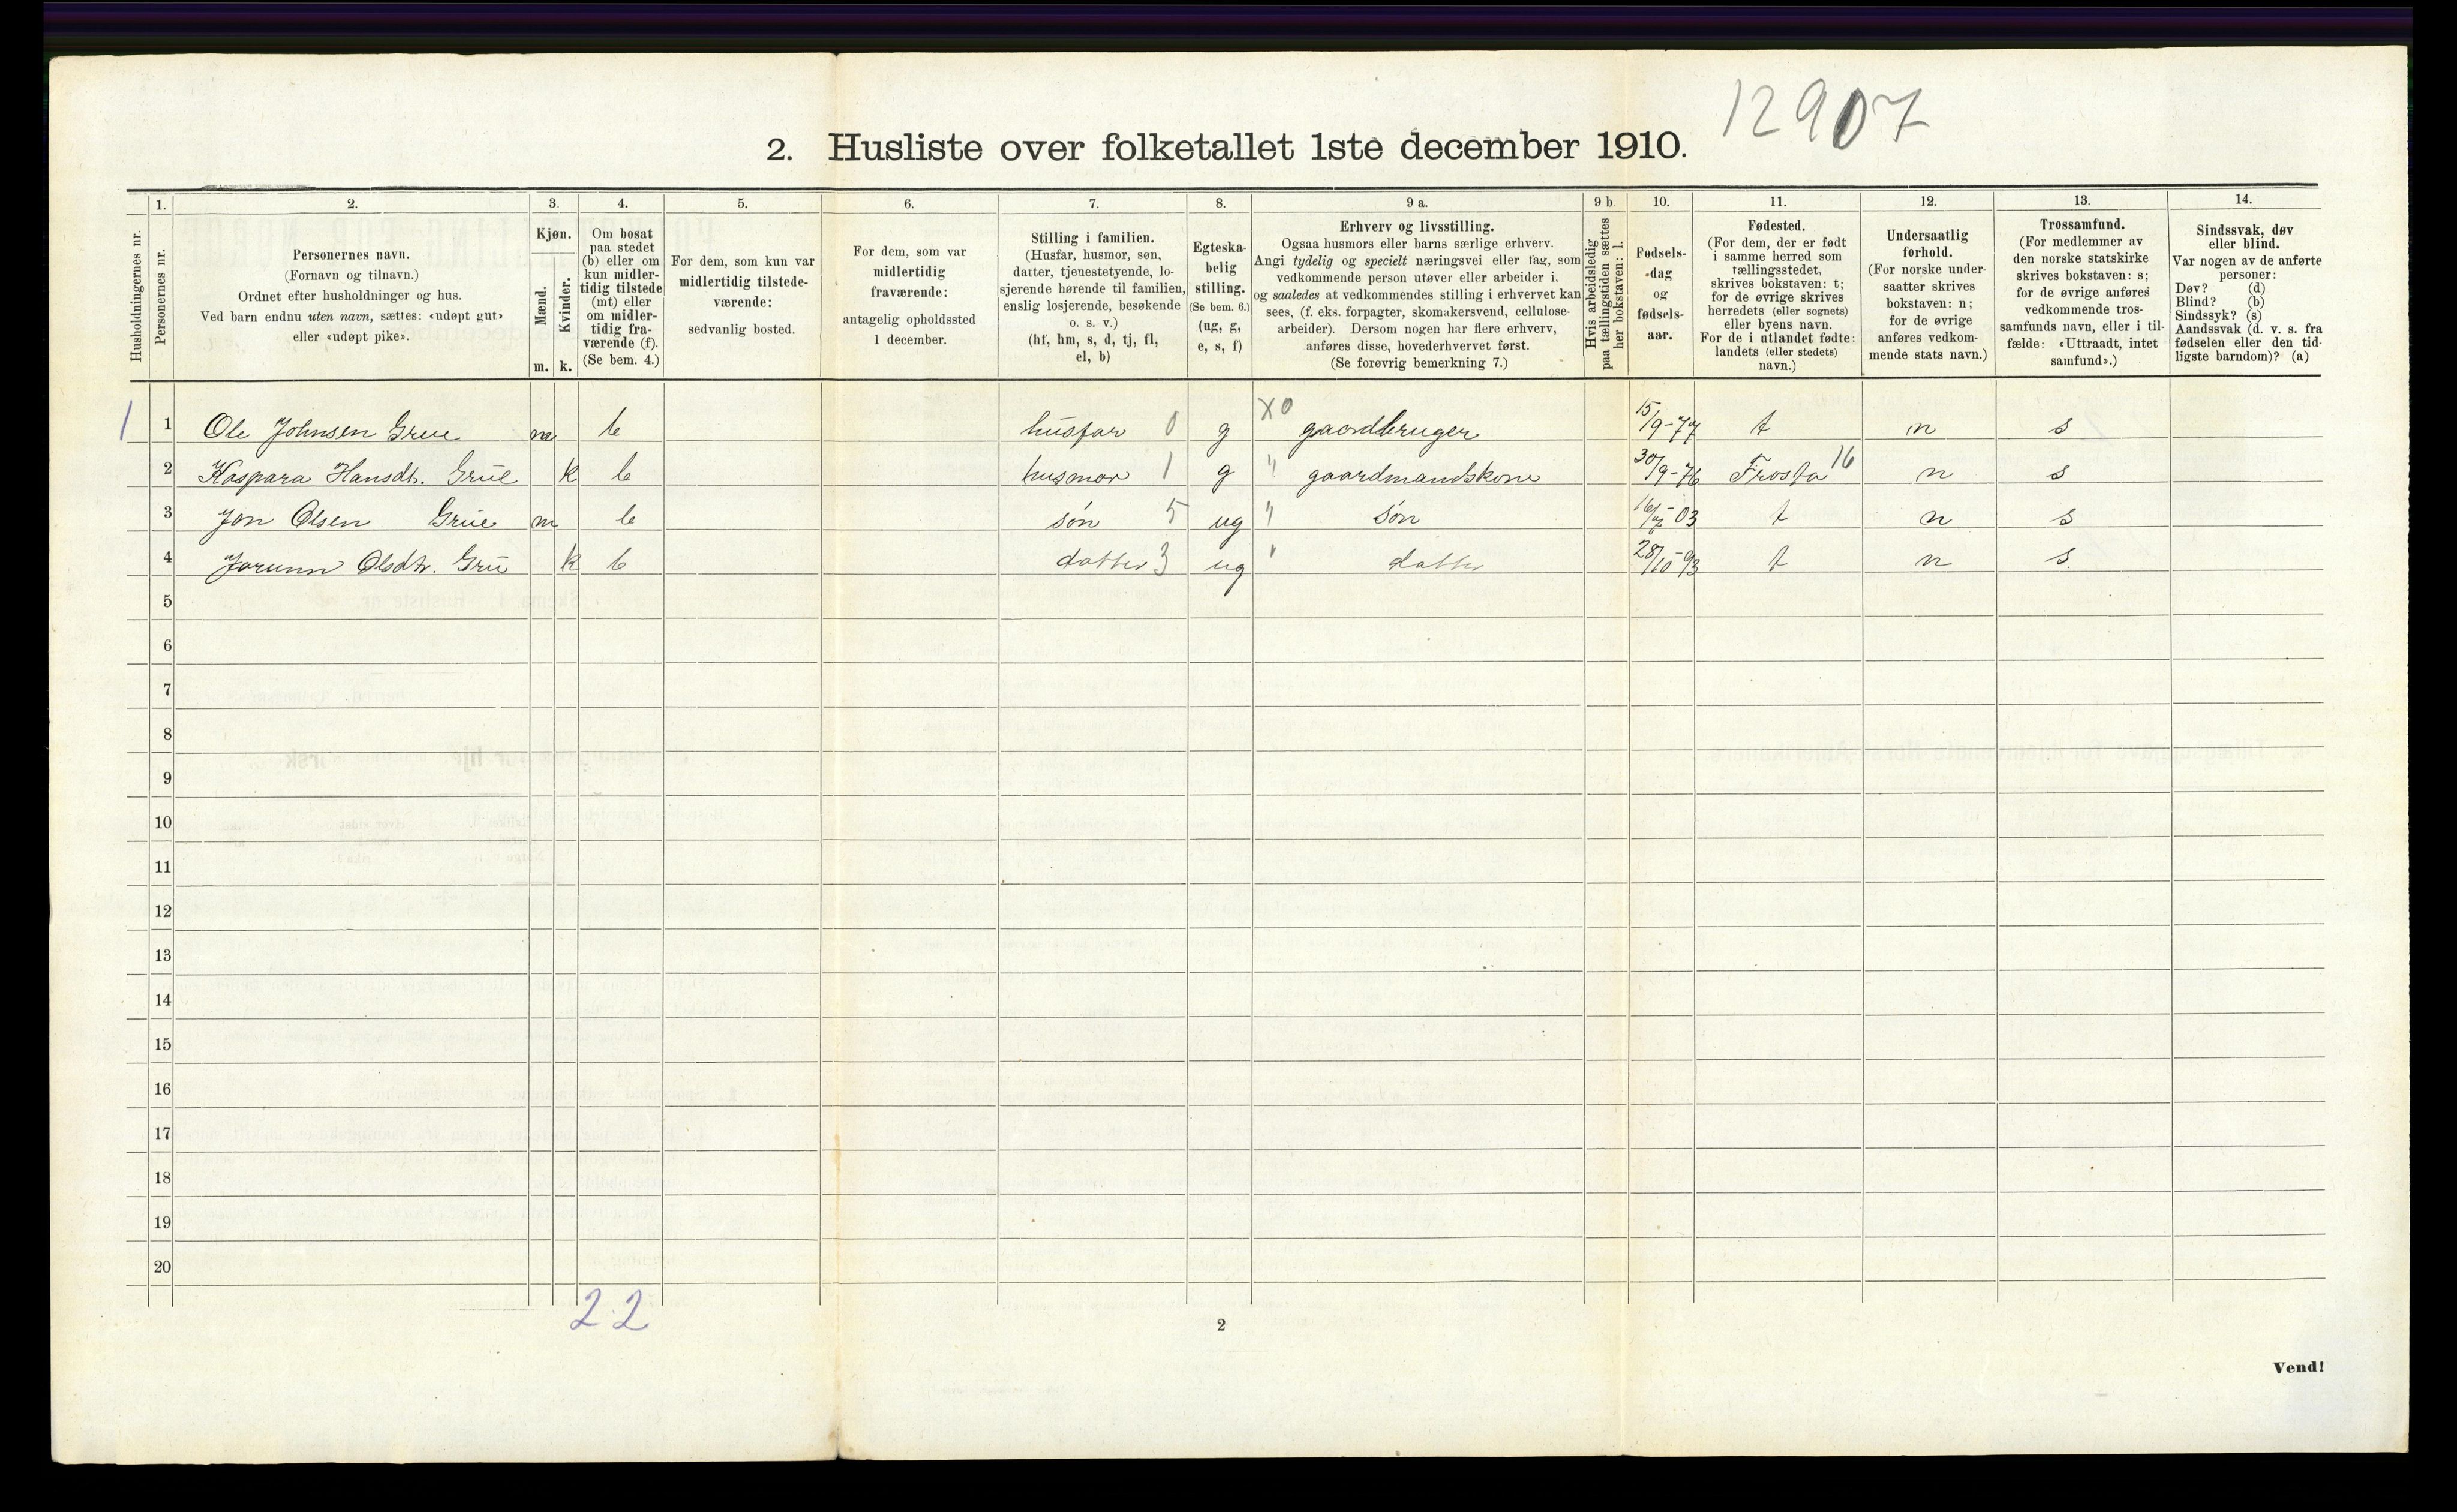 12907
2. Husliste over folketallet 1ste december 1910.
Husholdningernes nr.
1. Personernes nr.
2. Personernes navn.
(Fornavn og tilnavn.)
Ordnet efter husholdninger og hus.
Ved barn endnu uten navn, sættes: «udøpt gut»
eller «udøpt pike».
3. Kjøn.
Mænd. m.
Kvinder. k.
4. Om bosat
paa stedet
(b) eller om
kun midler-
tidig tilstede
(mt) eller
om midler-
tidig fra-
værende (f).
(Se bem. 4.)
5. For dem, som kun var
midlertidig tilstede-
værende:
sedvanlig bosted.
6. For dem, som var
midlertidig
fraværende:
antagelig opholdssted
1 december.
7. Stilling i familien.
(Husfar, husmor, søn,
datter, tjenestetyende, lo-
sjerende hørende til familien,
enslig losjerende, besøkende
o. s. v.)
(hf, hm, s, d, tj, fl,
el, b)
8. Egteska-
belig
stilling.
(Se bem. 6.)
(ug, g,
e, s, f)
9 a. Erhverv og livsstilling.
Ogsaa husmors eller barns særlige erhverv.
Angi tydelig og specielt næringsvei eller fag, som
vedkommende person utøver eller arbeider i,
og saaledes at vedkommendes stilling i erhvervet kan
sees, (f. eks. forpagter, skomakersvend, cellulose-
arbeider). Dersom nogen har flere erhverv,
anføres disse, hovederhvervet først.
(Se forøvrig bemerkning 7.)
9 b. Hvis arbeidsledig
paa tællingstiden sættes
her bokstaven: l.
10. Fødsels-
dag
og
fødsels-
aar.
11. Fødested.
(For dem, der er født
i samme herred som
tællingsstedet,
skrives bokstaven: t;
for de øvrige skrives
herredets (eller sognets)
eller byens navn.
For de i utlandet fødte:
landets (eller stedets)
navn.)
12. Undersaatlig
forhold.
(For norske under-
saatter skrives
bokstaven: n;
for de øvrige
anføres vedkom-
mende stats navn.)
13. Trossamfund.
(For medlemmer av
den norske statskirke
skrives bokstaven: s;
for de øvrige anføres
vedkommende tros-
samfunds navn, eller i til-
fælde: «Uttraadt, intet
samfund».)
14. Sindssvak, døv
eller blind.
Var nogen av de anførte
personer:
Døv? (d)
Blind? (b)
Sindssyk? (s)
Aandssvak (d. v. s. fra
fødselen eller den tid-
ligste barndom)? (a)
1 1 Ole Johnsen Grue m b husfar 0 g X0 gaardbruger 15/9-77 t n s
2 Kaspara Hansdt. Grue k b husmor 1 g " gaardmandskone 30/9-76 Frosta 16 n s
3 Jon Olsen Grue m b søn 5 ug " søn 03 t n s
4 Jorunn Olsdtr. Gru k b datter 3 ug " datter 28/10-93 t n s.
5
6
7
8
9
10
11
12
13
14
15
16
17
18
19
20
2 2
2
Vend!